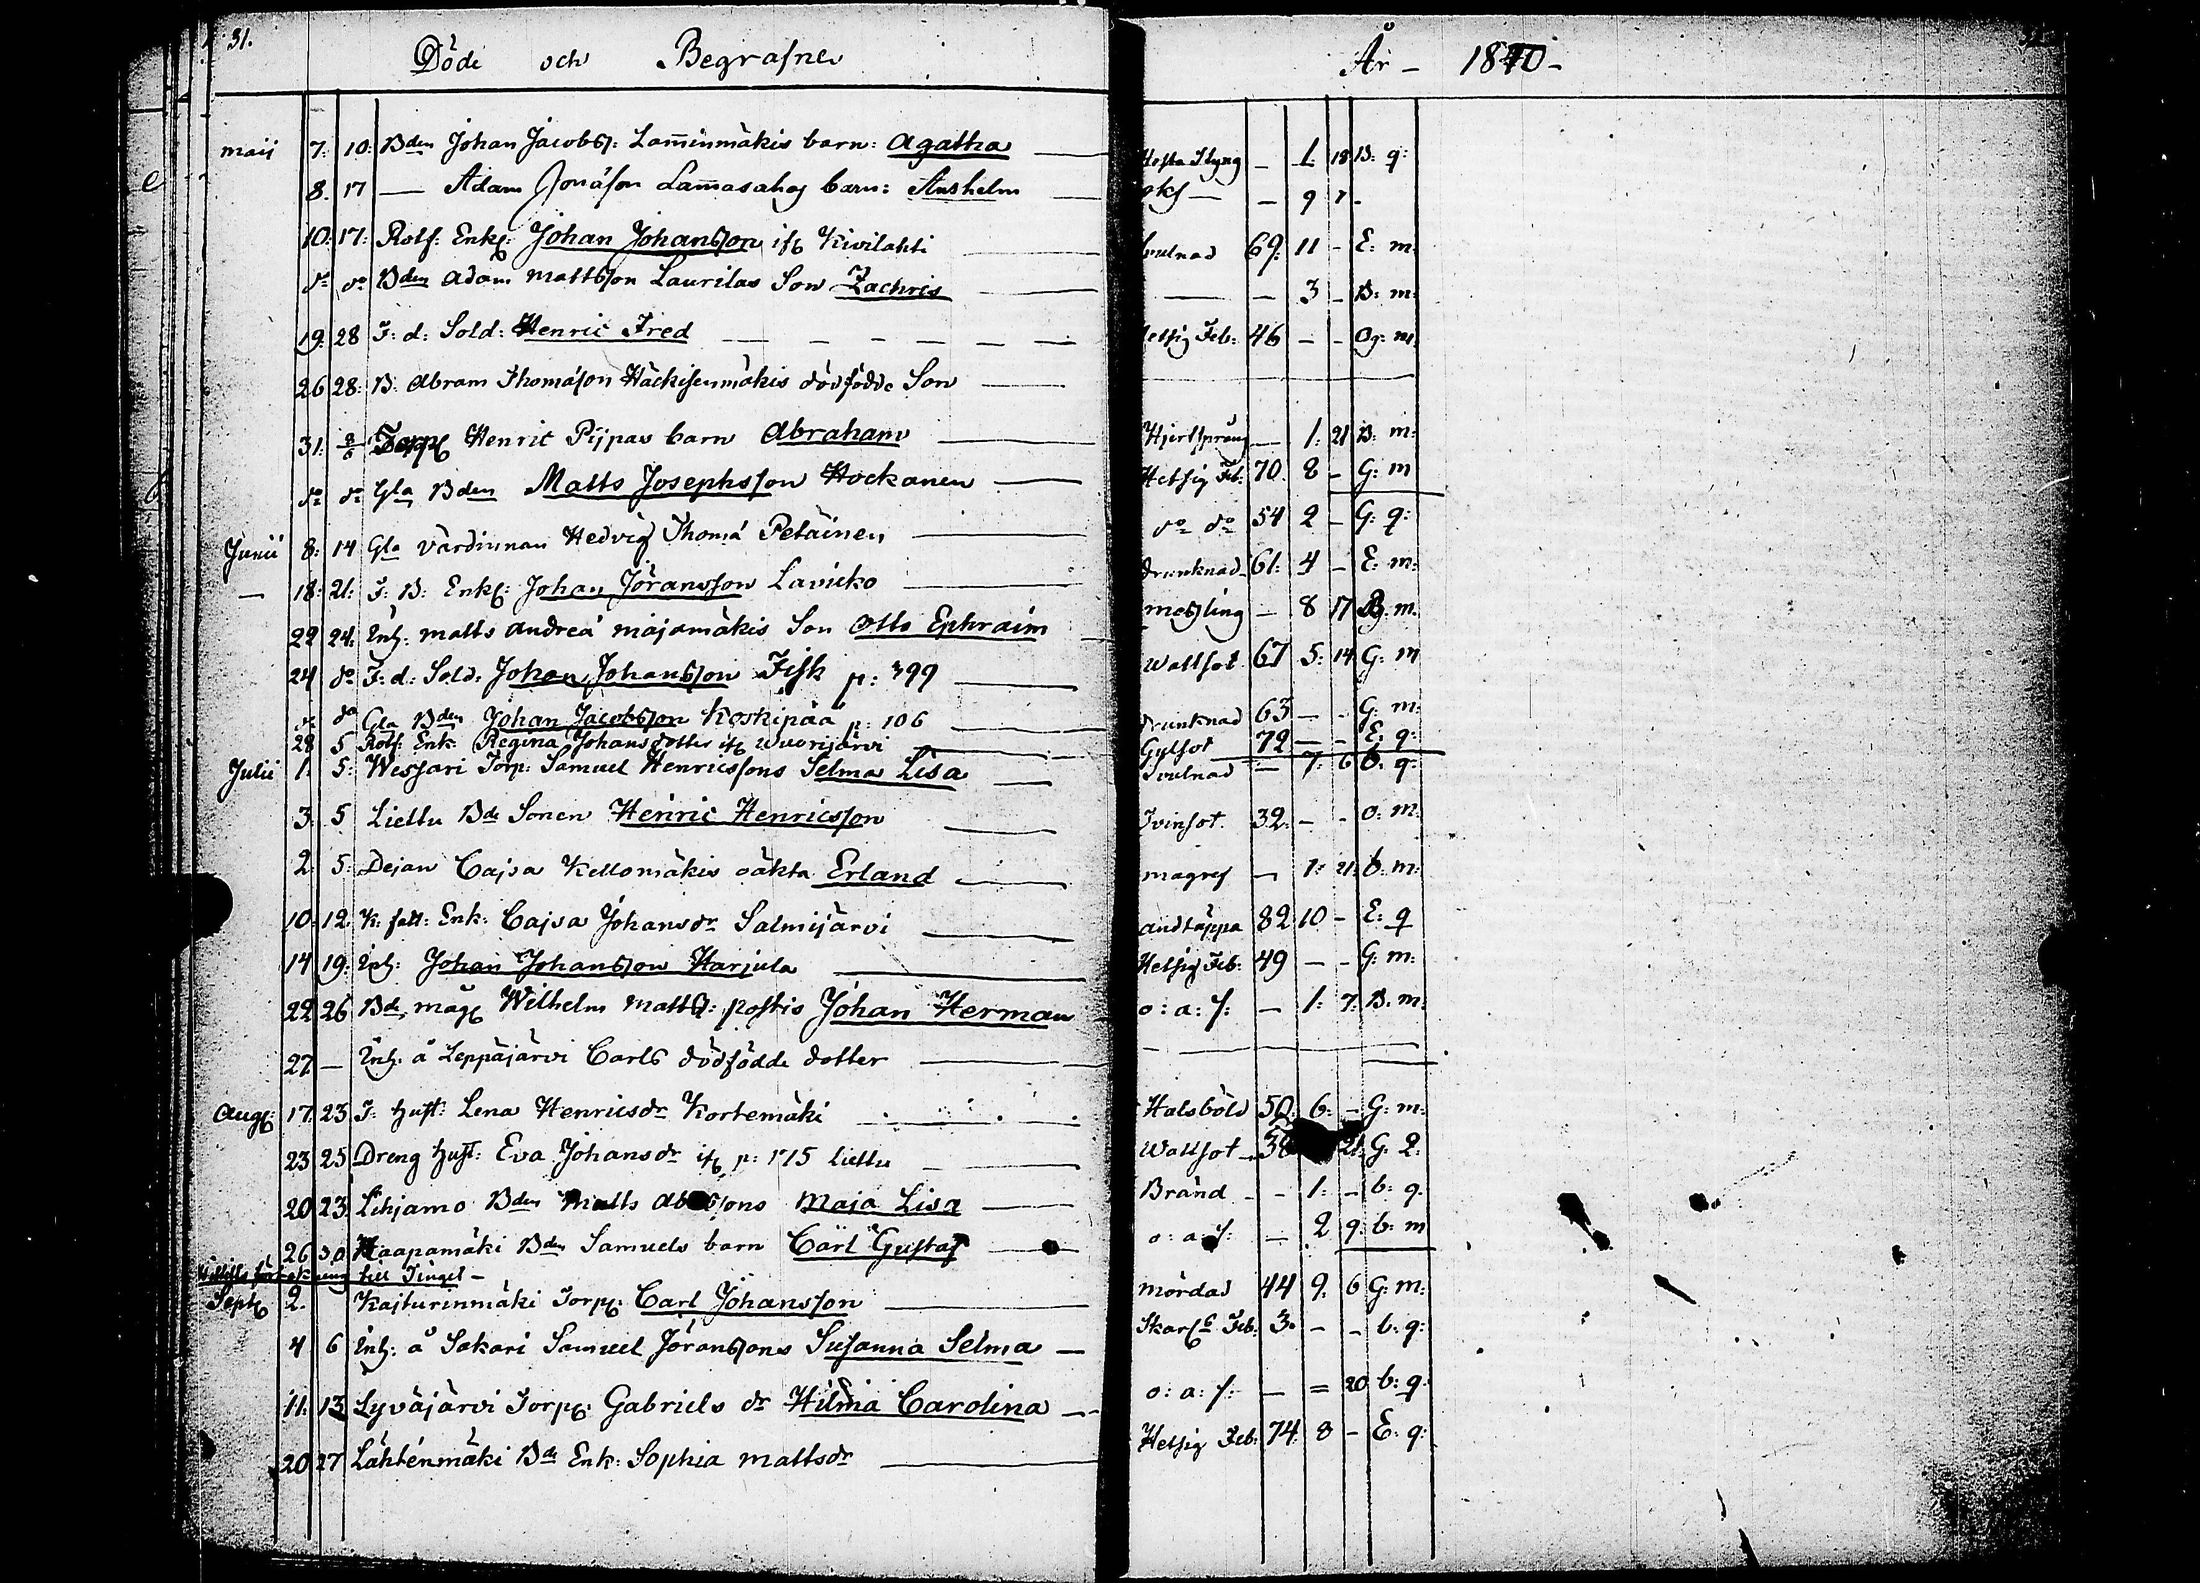 31.
Döde och Begrafne År - 1840 -
Maij 7: 10: Bden Johan Jacobss: Lam̄inmäkis barn: Agatha — Hosta Styng — 1: 18 B: q:
8. 17 — Adam Jonásson Lam̄asahos barn: Anshelm — 9 7 -
10: 17: Rotf: Enkl: Johan Johansson ifr Kivilahti — 69: 11 - E: m:
do do Bden Adam Mattsson Laurilas Son Zachris — — 3 - B: m:
19: 28 F: d: Sold: Henric Fred — Hetsig Feb: 46 - - Og: m:
26 28: B. Abram Thomásson Häckisenmäkis dödfödde Son —
31: Torp Henric Pijpas barn Abraham — Hjertsprång — 1: 21 B: m:
do do Gla Bden Matts Josephsson Hockanen — Hetsig Feb: 70. 8 - G: m
Junii 8: 14 Gla Värdinnan Hedvig Thomá Petäinen — do do 54 2 - G: q:
— 18: 21: F: B: Enkl: Johan Jöransson Lavicko — drunknad 61: 4 - E: m:
22 24: Inh: Matts Andreá Majamäkis Son Otto Ephraim — messling — 8 17 B: m.
24 do F: d: Sold: Johan Johansson Fisk p: 399 — Wattsot 67 5: 14 G: m
do do Gla Bden Johan Jacobsson Koskipää p: 106 — drunknad 63 — - G: m:
28 5 Rotf: Enk: Regina Johansdotter ifr Wuorijärvi — Gulsot 72 — - E: q:
Julii 1. 5: Wessari Torp: Samuel Henricssons Selma Lisa — Svulnad — 7: 6 b: q:
3. 5 Liettu Bde Sonen Henric Henricsson — Tvinsot. 32: - - o: m:
2: 5: Dejan Cajsa Kellomäkis oäkta Erland — magref — 1: 21: b: m:
10: 12: K: fatt: Enk: Cajsa Johansdr Salmijärvi — andtäppa 82 10 - E: q
14 19: Inh: Johan Johansson Harjula — Hetsig Feb: 49 — - G: m:
22 26 Bde, måg Wilhelm Mattss: Postis Johan Herman — o: a: s: — 1: 7: B. m:
27 — Inh: å Leppäjärvi Carls dödfödde dotter —
Aug: 17: 23 F: hust: Lena Henricsdr Kortemäki — Halsböld 50: 6: - G: m:
23 25 Dreng hust: Eva Johansdr ifr p: 175 Liettu — Wattsot 21: G: q:
20 23 Lehjamo Bden Matts Maja Lisa — Bränd - - 1: - b: q.
26 30 Haapamäki Bden Samuels barn Carl Gustaf — o: a: s: — 2 9: b: m
till Tinget -
Sept 2. Kajturinmäki Torp: Carl Johansson — mördad 44 9: 6 G: m:
4 6 Inh: å Sakari Samuel Jöranssons Susanna Selma — Skarls Feb: 3. - - b: q:
11: 13 Lyväjärvi Torp: Gabriels dr Hilma Carolina — o: a: s: — = 20 b: q:
20 27 Lähténmäki Bde Enk: Sophia Mattsdr — Hetsig Feb: 74: 8 - E: q: